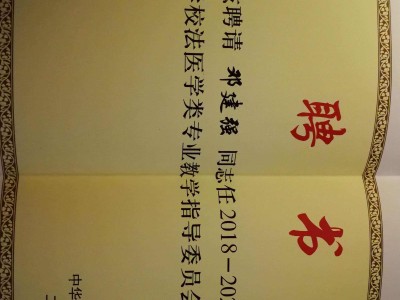 聘书
聘请 邓建强 同志任2018-20
学校法医学类专业教学指导委员会
中华